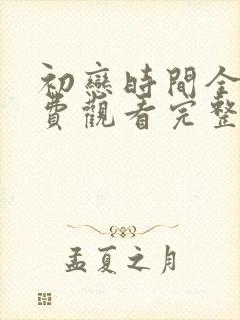 初戀時間全
費觀看完整
孟夏之月